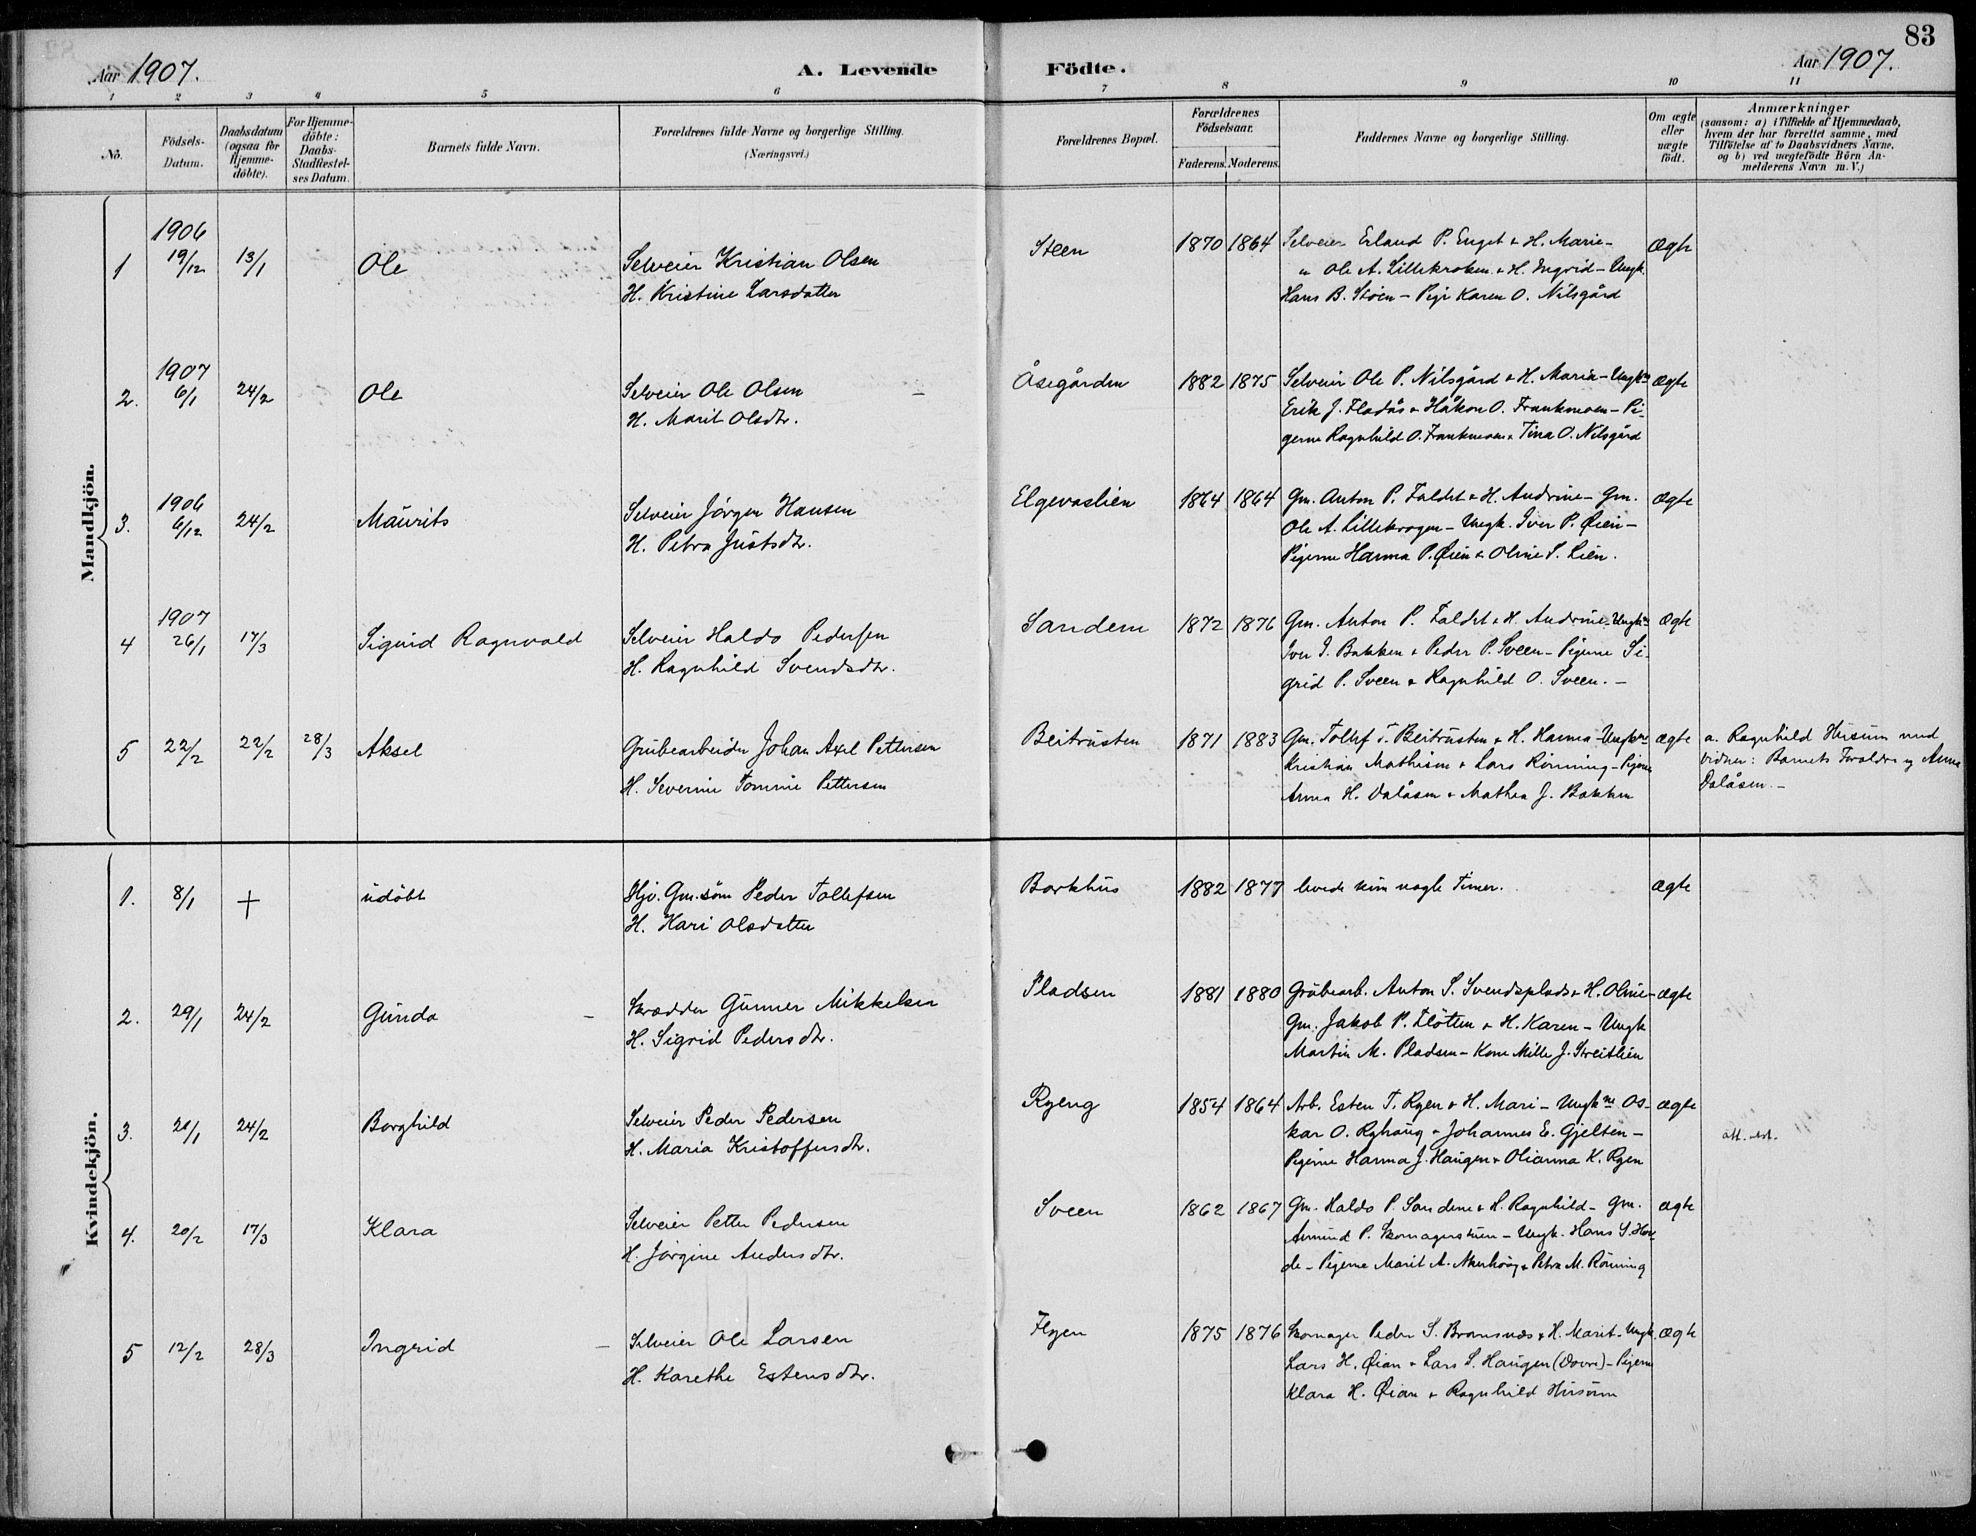 83
Aar 1907.
A. Levende Födte.
Aar 1907.
1 2 3 4 5 6 7 8 9 10 11
No.
Födsels-Datum.
Daabsdatum (ogsaa for Hjemme-döbte).
For Hjemme-döbte: Daabs-Stadfæstel-ses Datum.
Barnets fulde Navn.
Forældrenes fulde Navne og borgerlige Stilling. (Næringsvei.)
Forældrenes Bopæl.
Forældrenes Födselsaar.
Faderens. Moderens.
Faddernes Navne og borgerlige Stilling.
Om ægte eller uægte födt.
Anmærkninger
(saasom: a) i Tilfælde af Hjemmedaab,
hvem der har forrettet samme, med
Tilföielse af to Daabsvidners Navne,
og b) ved uægtefödte Börn An-
melderens Navn m.V.)
Mandkjön.
1 1906 19/12 13/1 Ole
Selveier Kristian Olsen
H. Kristine Larsdatter
Steen 1870 1864
Selveier Erland P. Enget & H. Marie-
" Ole A. Lillekroken & H. Ingrid - Ungk.
Hans B. Støen - Pige Karen O. Nilsgård
Ægte
2. 1907 6/1 24/2 Ole
Selveier Ole Olsen
H. Marit Olsdtr.
Åsegården 1882 1875
Selveier Ole P. Nilsgård & H. Maria - Ungkne
Erik J. Fladås & Håkon O. Frankmoen - Pi-
gerne Ragnhild O. Frankmoen & Tina O. Nilsgård
Ægte
3. 1906 6/12 24/2 Maurits
Selveier Jörgen Hansen
H. Petra Justsdtr.
Elgevaslien 1864 1864
Gm. Anton P. Faldet & H. Andrine - Gm.
Ole A. Lillekrogen - Ungk. Iver P. Øien -
Pigerne Hanna P. Øien & Oline S. Lien.
Ægte
4 1907 26/1 17/3 Sigurd Ragnvald
Selveier Haldo Pedersen
H. Ragnhild Svendsdtr.
Sandem 1872 1876
Gm. Anton P. Faldet & H. Andrine - Ungkne
Iver I. Bakken & Peder P. Sveen - Pigerne Si-
grid P. Sveen & Ragnhild O. Sveen. -
Ægte
5 22/2 22/2 28/3 Aksel
Grubearbeider Johan Axel Pettersen
H. Severine Tomine Pettersen
Beitrusten 1871 1883
Gm. Tollef T. Beitrusten & H. Hanna - Ungkne
Kristian Mathisen & Lars Rönning - Pigerne
Anna H. Dalåsen & Mathea J. Bakken
ægte
a. Ragnhild Husum med
vidner: Barnets Forældre og Anna
Dalåsen. -
Kvindekjön.
1. 8/1 + udöbt
Hjv. Gm.søn Peder Tollefsen
H. Kari Olsdatter
Barkhus 1882 1877
levede kun nogle Timer.
ægte
2. 29/1 24/2 Gunda
Skrædder Gunner Mikkelsen
H. Sigrid Pedersdtr.
Pladsen 1881 1880
Grubearb. Anton S. Svendsplads & H. Oline -
Gm. Jakob P. Flöten & H. Karen - Ungk.
Martin M. Pladsen - Kone Mille J. Streitlien
ægte
3. 20/1 24/2 Borghild
Selveier Peder Pedersen
H. Maria Kristoffersdtr.
Ryeng 1854 1864
Arb. Esten T. Ryen & H. Mari - Ungkne Os-
kar O. Ryhaug & Johannes E. Gjelten -
Pigerne Hanna J. Haugen & Olianna K. Ryen
ægte
att. udst.
4. 20/2 17/3 Klara
Selveier Petter Pedersen
H. Jörgine Andersdtr.
Sveen 1862 1867
Gm. Haldo P. Sandem & H. Ragnhild - Gm.
Amund P. Skomagerstuen - Ungk. Hans S. Hor-
de - Pigerne Marit A. & Petra M. Rönning
ægte
5 12/2 28/3 Ingrid
Selveier Ole Larsen
H. Karethe Estensdtr.
Flyen 1875 1876
Skomager Peder S. Bransnæs & H. Marit - Ungk.
Lars H. Øian & Lars S. Haugen (Dovre) - Pigerne
Klara H. Øian & Ragnhild Husum
Ægte